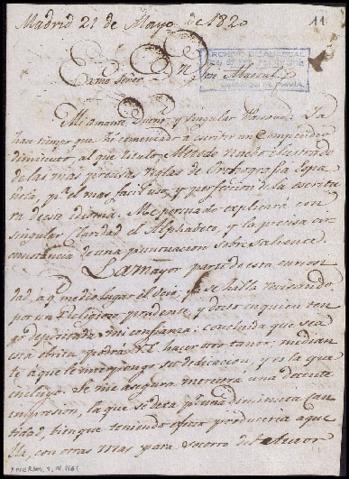 Madrid 21 de Mayo de 1820
11
Exmo Señor
Mi amante Dueño y singular Patrono: Ya
hace tiempo que he comenzado a escribir un Compendio
diminuto, al que titulo Método nuebo ilustrado
de las mas precisas reglas de Orthografia Espa
ñola, pa. el mas facil uso, y perfeccion de la escritu
ra de este idioma. Me persuado explicará con
singular claridad el Alphabeto, y la precisa cir
cunstancia de una puntuacion sobresaliente.
La mayor parte de esta curiosi
dad, a q. medio lugar el Ocio, ya se halla revisando,
por un Religioso prudente, y docto en quien ten
go depositada mi confianza: concluida que sea
esta obrita, podrá V.E. hacer otro tanto; median
te a que le interpongo su dedicacion, y es la que
incluyo. Se me asegura merecerá una decente
impresion, la que se dexa pr. una diminuta Can
tidad, bien que teniendo efecto produciria aque
lla, con otras mas para socorro del Autor